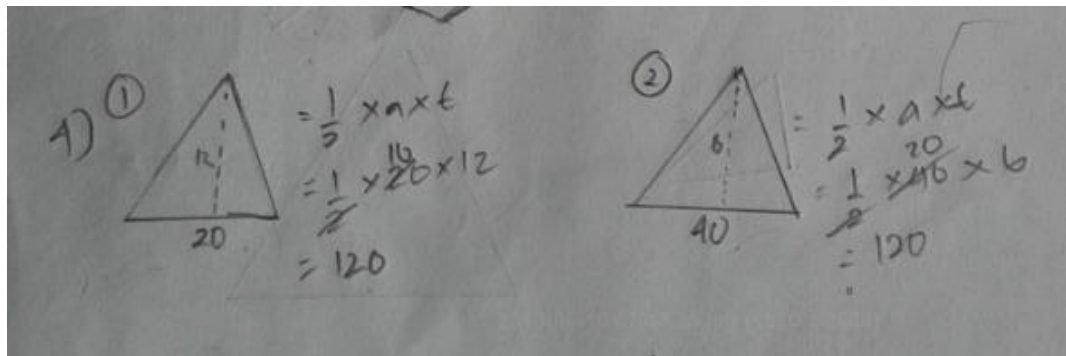 4) ①
12
20
= 1/2 × a × t
= 1/2 × 20 10 × 12
= 120
②
6
40
= 1/2 × a × t
= 1/2 × 40 20 × 6
= 120